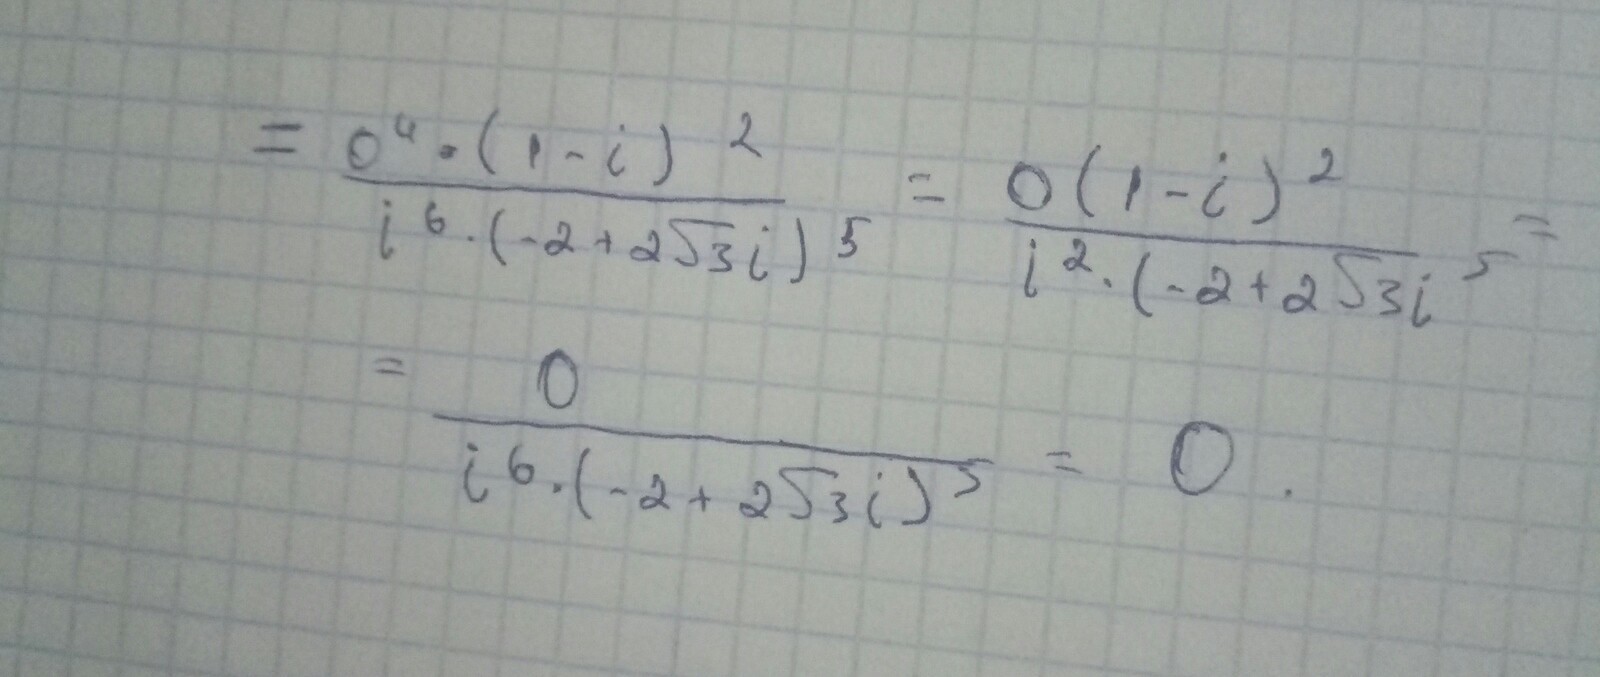 = 0⁴·(1-i)² / i⁶·(-2+2√3i)⁵ = 0(1-i)² / i²·(-2+2√3i⁵ =
= 0 / i⁶·(-2+2√3i)⁵ = 0.